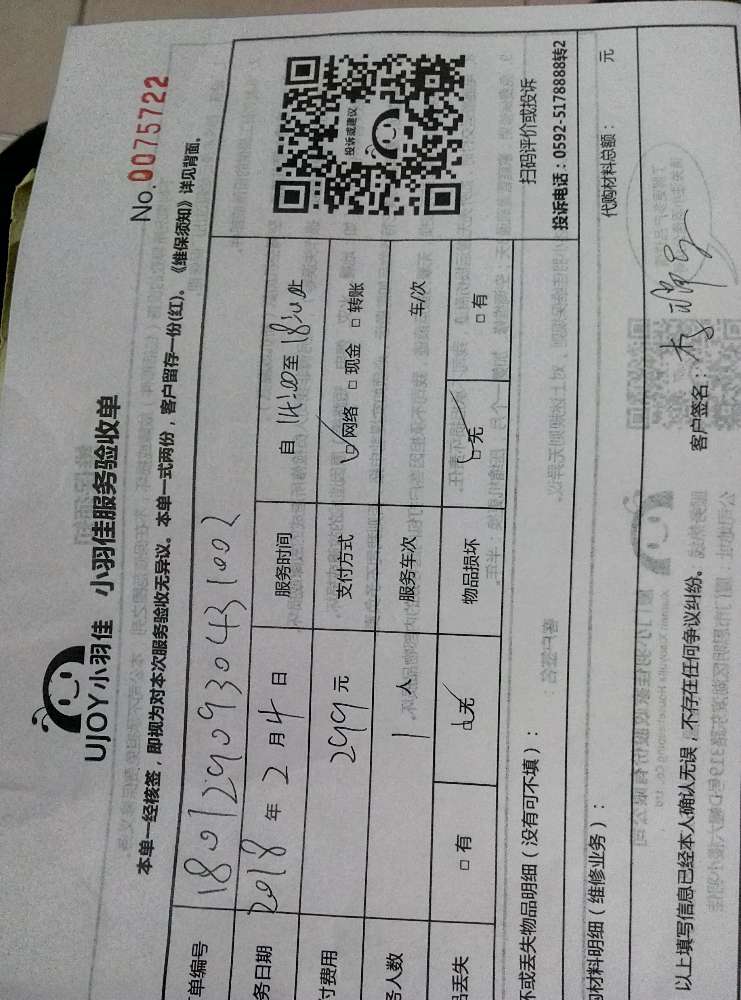 UJOY小羽佳 小羽佳服务验收单
No.0075722
本单一经核签，即视为对本次服务验收无异议。本单一式两份，客户留存一份(红)。《维保须知》详见背面。
单编号 1801290930431002
务日期 2018 年 2 月 4 日 服务时间 自 14:00 至 18:00 止
付费用 299 元 支付方式 ☑网络 □现金 □转账
务人数 1 人 服务车次 车/次
品丢失 □有 ☑无 物品损坏 ☑无 □有
投诉或建议
扫码评价或投诉
投诉电话：0592-5178888转2
坏或丢失物品明细（没有可不填）：
材料明细（维修业务）： 代购材料总额： 元
以上填写信息已经本人确认无误，不存在任何争议纠纷。 客户签名：